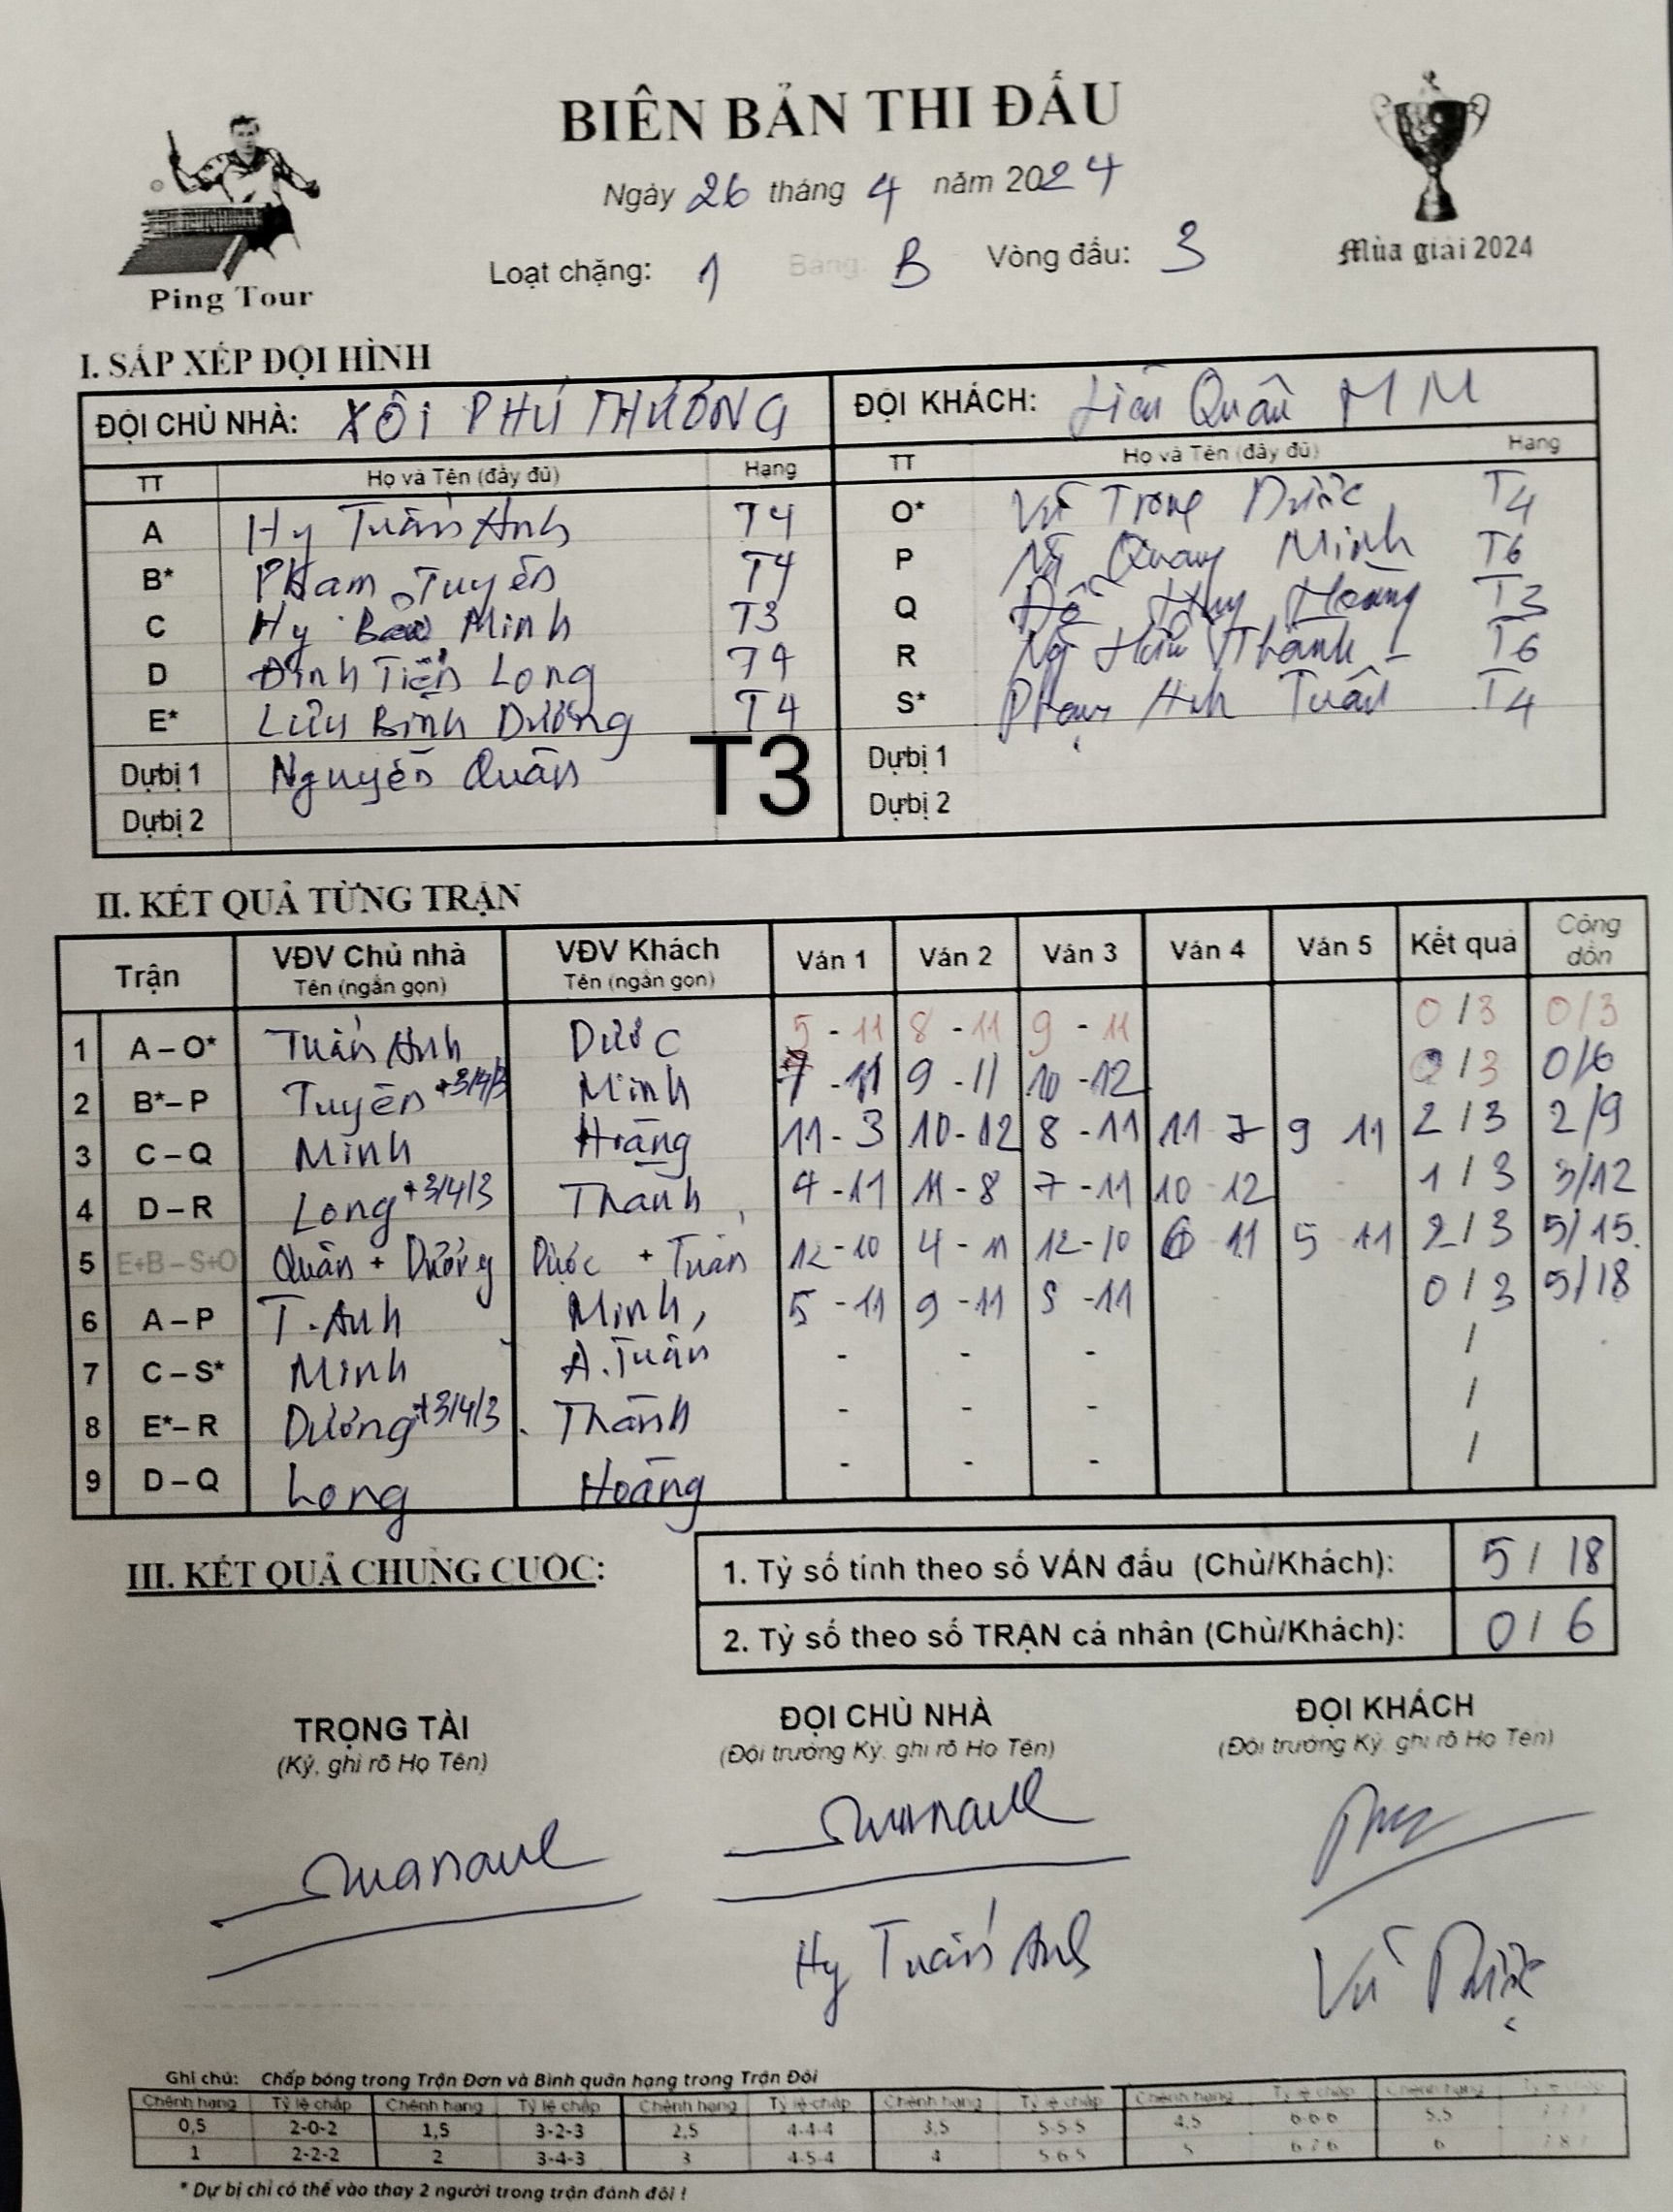 BIÊN BẢN THI ĐẤU
Ngày 26 tháng 4 năm 2024
Loạt chặng: 1 Bảng: B Vòng đấu: 3
Ping Tour
Mùa giải 2024
I. SẮP XẾP ĐỘI HÌNH
ĐỘI CHỦ NHÀ: XÔI PHÚ THƯỢNG ĐỘI KHÁCH: Liên Quân MM
TT Họ và Tên (đầy đủ) Hạng TT Họ và Tên (đầy đủ) Hạng
A Hy Tuấn Anh T4 O* Vũ Trọng Được T4
B* Phạm Tuyên T4 P Ng Quang Minh T6
C Hy Bảo Minh T3 Q Đỗ Huy Hoàng T3
D Đinh Tiến Long T4 R Ng Hữu Thành T6
E* Lưu Bình Dương T4 S* Phạm Anh Tuấn T4
Dự bị 1 Nguyễn Quân T3 Dự bị 1
Dự bị 2 Dự bị 2
II. KẾT QUẢ TỪNG TRẬN
Trận VĐV Chủ nhà Tên (ngắn gọn) VĐV Khách Tên (ngắn gọn) Ván 1 Ván 2 Ván 3 Ván 4 Ván 5 Kết quả Cộng dồn
1 A – O* Tuấn Anh Được 5 - 11 8 - 11 9 - 11 0 / 3 0/3
2 B* – P Tuyên +3/4/3 Minh 7 - 11 9 - 11 10 - 12 0 / 3 0/6
3 C – Q Minh Hoàng 11 - 3 10 - 12 8 - 11 11 7 9 11 2 / 3 2/9
4 D – R Long +3/4/3 Thành 4 - 11 11 - 8 7 - 11 10 12 1 / 3 3/12
5 E+B – S+O Quân + Dương Được + Tuấn 12 - 10 4 - 11 12 - 10 6 11 5 11 2 / 3 5/15
6 A – P T. Anh Minh 5 - 11 9 - 11 - 11 0 / 3 5/18
7 C – S* Minh A. Tuấn - - - /
8 E* – R Dương +3/4/3 Thành - - - /
9 D – Q Long Hoàng - - - /
III. KẾT QUẢ CHUNG CUỘC:
1. Tỷ số tính theo số VÁN đấu (Chủ/Khách): 5 / 18
2. Tỷ số theo số TRẬN cá nhân (Chủ/Khách): 0 / 6
TRỌNG TÀI ĐỘI CHỦ NHÀ ĐỘI KHÁCH
(Ký, ghi rõ Họ Tên) (Đội trưởng Ký, ghi rõ Họ Tên) (Đội trưởng Ký, ghi rõ Họ Tên)
Hy Tuấn Anh Vũ Được
Ghi chú: Chấp bóng trong Trận Đơn và Bình quân hạng trong Trận Đôi
Chênh hạng Tỷ lệ chấp Chênh hạng Tỷ lệ chấp Chênh hạng Tỷ lệ chấp Chênh hạng Tỷ lệ chấp Chênh hạng Tỷ lệ chấp Chênh hạng
0,5 2-0-2 1,5 3-2-3 2,5 4-4-4 3,5 5-5-5 4,5 6-6-6 5,5
1 2-2-2 2 3-4-3 3 4-5-4 4 5 6 5 5 6 7 6 6
* Dự bị chỉ có thể vào thay 2 người trong trận đánh đôi !